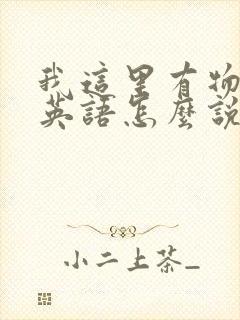 我這里有物
英語怎麼說
小二上茶_